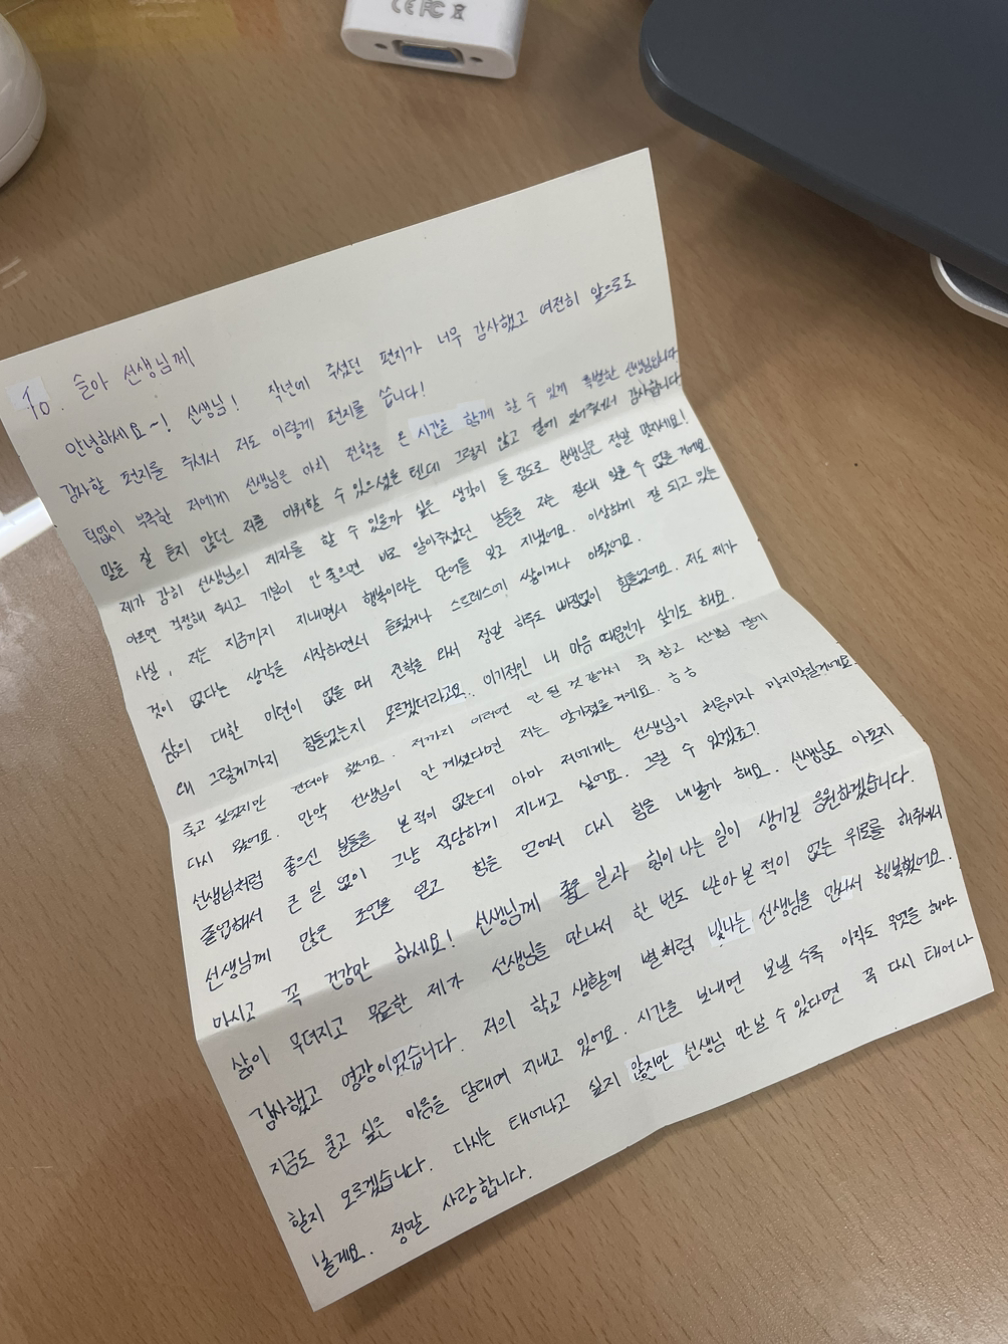 CE FC
To. 슬아 선생님께
안녕하세요~! 선생님! 작년에 주셨던 편지가 너무 감사했고 여전히 앞으로도
감사할 편지를 주셔서 저도 이렇게 편지를 씁니다!
턱없이 부족한 저에게 선생님은 마치 전학을 온 시간을 함께 할 수 있게 특별한 선생님입니다
말을 잘 듣지 않던 저를 미워할 수 있으셨을 텐데 그렇지 않고 곁에 있어주셔서 감사합니다
제가 감히 선생님의 제자를 할 수 있을까 싶은 생각이 들 정도로 선생님은 정말 멋지세요!
아프면 걱정해 주시고 기분이 안 좋으면 바로 알아주셨던 날들을 저는 절대 잊을 수 없을 거에요
사실, 저는 지금까지 지내면서 행복이라는 단어를 잊고 지냈어요. 이상하게 잘 되고 있는
것이 없다는 생각을 시작하면서 슬펐거나 스트레스가 쌓이거나 아팠어요.
삶의 대한 미련이 없을 때 전학을 와서 정말 하루도 빠짐없이 힘들었어요. 저도 제가
왜 그렇게까지 힘들었는지 모르겠더라고요. 이기적인 내 마음 때문인가 싶기도 해요.
죽고 싶었지만 견뎌야 했어요. 저까지 이러면 안 될 것 같아서 꾹 참고 선생님 곁에
다시 왔어요. 만약 선생님이 안 계셨다면 저는 망가졌을 거에요. ㅎㅎ
선생님처럼 좋으신 분들을 본 적이 없는데 아마 저에게는 선생님이 처음이자 마지막일거에요
졸업해서 큰 일 없이 그냥 적당하게 지내고 싶어요. 그럴 수 있겠죠?
선생님께 많은 조언을 듣고 힘을 얻어서 다시 힘을 내볼까 해요. 선생님도 아프지
마시고 꼭 건강만 하세요! 선생님께 좋은 일과 힘이 나는 일이 생기길 응원하겠습니다.
삶이 무뎌지고 무료한 제가 선생님을 만나서 한 번도 받아 본 적이 없는 위로를 해주셔서
감사했고 영광이었습니다. 저의 학교 생활에 별처럼 빛나는 선생님을 만나서 행복했어요.
지금도 울고 싶은 마음을 달래며 지내고 있어요. 시간을 보내면 보낼 수록 아직도 무엇을 해야
할지 모르겠습니다. 다시는 태어나고 싶지 않지만 선생님 만날 수 있다면 꼭 다시 태어나
볼게요. 정말 사랑합니다.